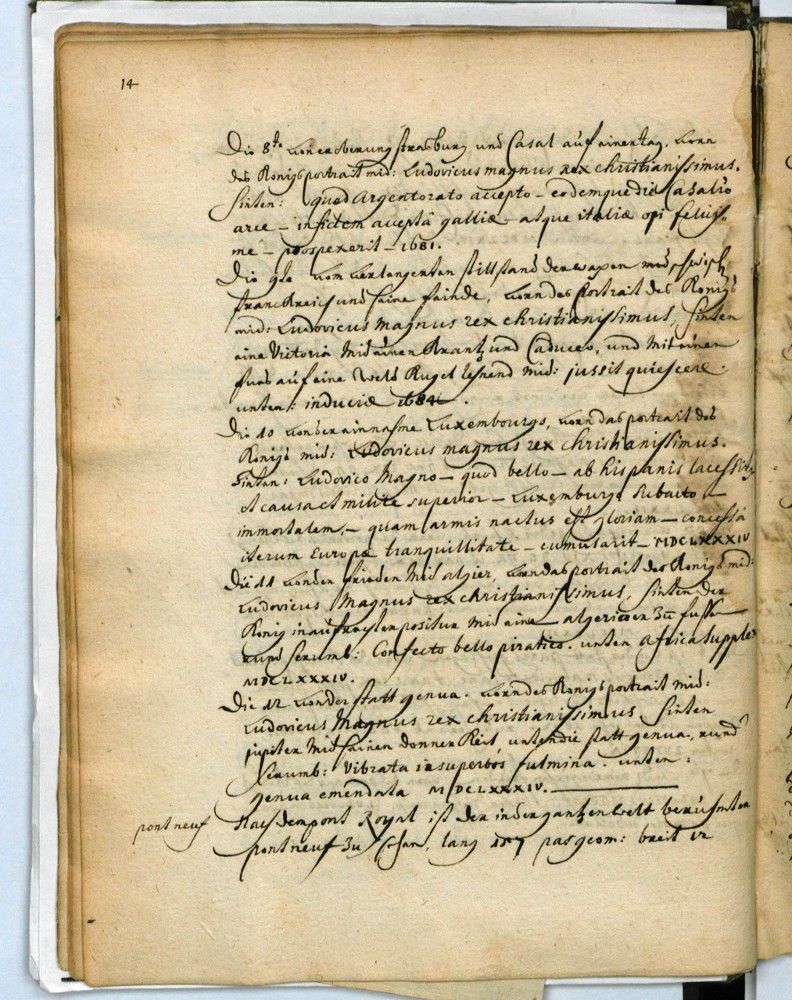 14
Die 8te von eroberung strasburg und Casal auf einen tag, vorn
des Königs portrait mid: Ludovicus magnus rex christianissimus.
hinten: quod Argentorato accepto – eodemque die Casalis
arce – in fidem acceptâ galliæ – atque italiæ opi felicis-
me – prospexerit – 1681.
Die 9te vom verlangerten stillstand der wapen
franckreich und seine feinde, vorn das Portrait des Königs
mid: Ludovicus Magnus rex christianissimus, hinten
eine Victoria mid einen Krantz und Caduceo, und mit einen
fues auf eine Welt Kugel lehnend mid: jussit quiescere.
unten: induciæ 1684.
Die 10 von der einnahme Luxembourgs, vorn das portrait des
Königs mid: Ludovicus magnus rex christianissimus.
hinten: Ludovico Magno – quod bello – ab hispanis lacessitus
et causa et milite superior – Luxemburgo subacto –
immortalem – quam armis nactus est gloriam – concessâ
iterum Europæ tranquillitate – cumularit – MDCLXXXIV
Die 11 von den frieden mid algier, vorn das portrait des Königs mid:
Ludovicus Magnus rex christianissimus, hinten der
König in aufrechter positur mid einen algerier zu fussen
rund herumb: Confecto bello piratico. unten Africa supplex
MDCLXXXIV.
Die 12 von der statt genua. vorn des Königs portrait mid:
Ludovicus Magnus rex christianissimus, hinten
jupiter mid seinen donner Keil, unten die statt genua, rund
herumb: Vibrata in superbos fulmina. unten:
genua emendata MDCLXXXIV.
pont neuf
Nach dem pont Royal ist der in der gantzen welt berühmten
pont neuf zu sehen, lang 157 pas geom: breit 12